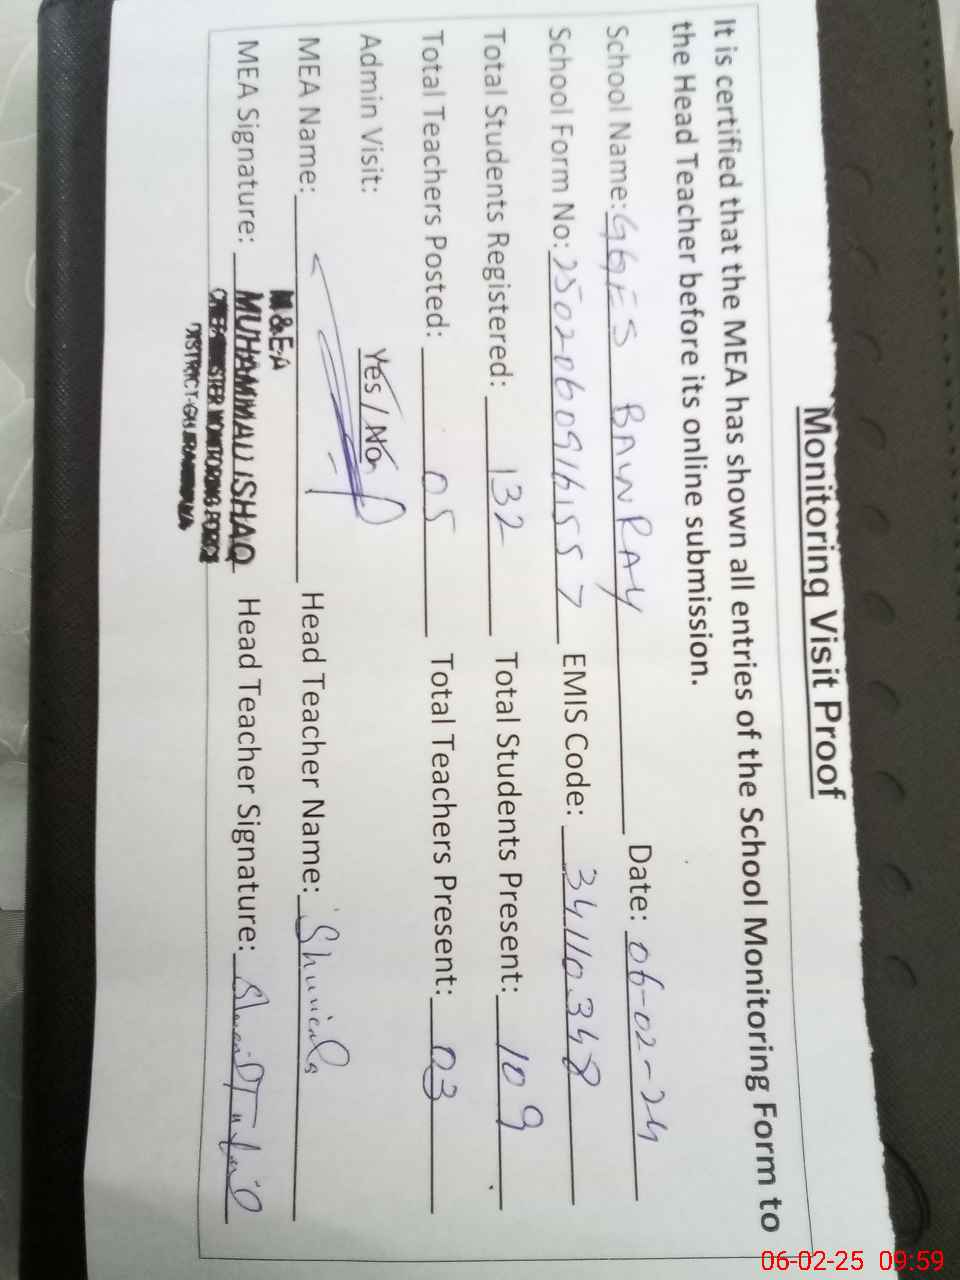 Monitoring Visit Proof
It is certified that the MEA has shown all entries of the School Monitoring Form to
the Head Teacher before its online submission.
School Name: GGES BAWRAY Date: 06-02-24
School Form No: 25020609161557 EMIS Code: 34110348
Total Students Registered: 132 Total Students Present: 109
Total Teachers Posted: 05 Total Teachers Present: 03
Admin Visit: Yes / No
MEA Name: Head Teacher Name:
M&EA
MEA Signature: MUHAMMAD ISHAQ Head Teacher Signature:
CHIEF MINISTER MONITORING FORCE
DISTRICT-GUJRANWALA
06-02-25 09:59